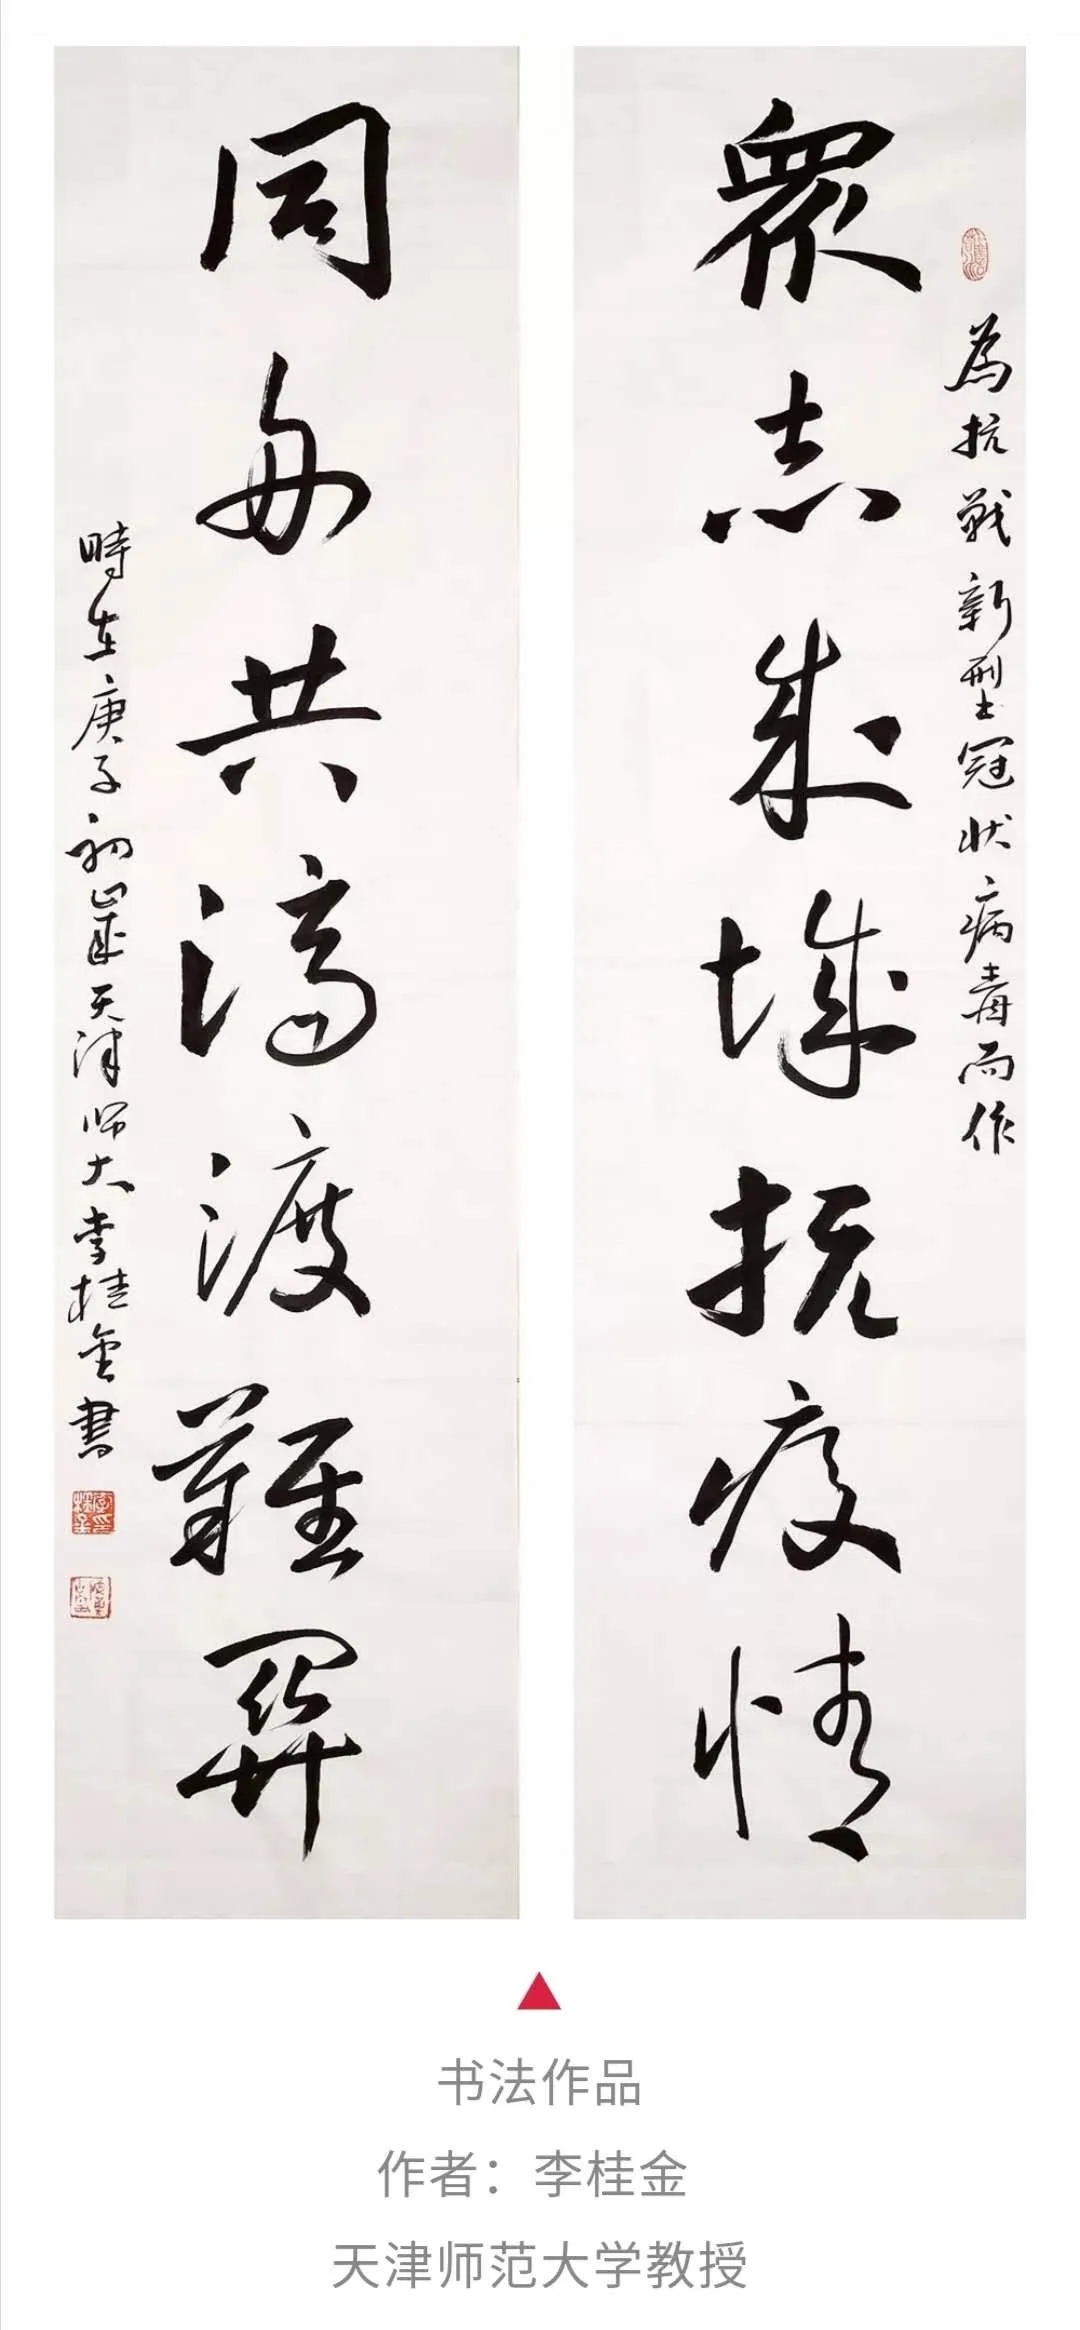 為抗戰新型冠狀病毒而作
衆志成城抗疫情
同舟共濟渡難關
時在庚子初歲天津師大李桂金書
书法作品
作者：李桂金
天津师范大学教授